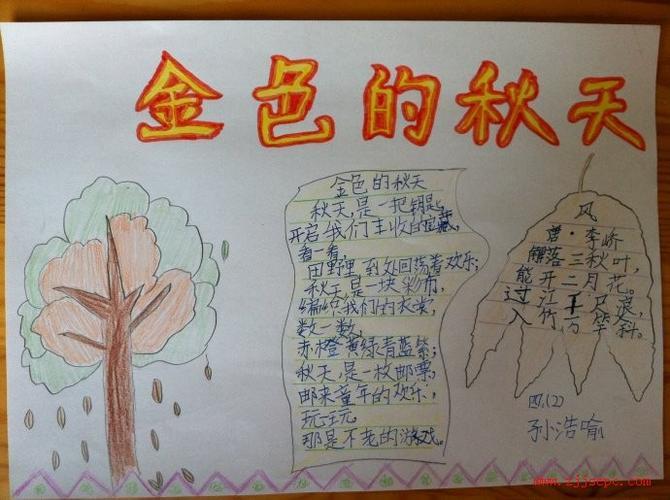 金色的秋天
金色的秋天
秋天,是一把钥匙,
开启我们丰收的宝藏,
看一看,
田野里到处回荡着欢乐;
秋天是一块彩布,
编织我们的衣裳,
数一数,
赤橙黄绿青蓝紫;
秋天,是一枚邮票,
邮来童年的欢乐,
玩一玩,
那是不老的游戏。
风
唐·李峤
解落三秋叶,
能开二月花。
过江千尺浪,
入竹万竿斜。
四(2)
孙浩喻
www.zjjsepc.com